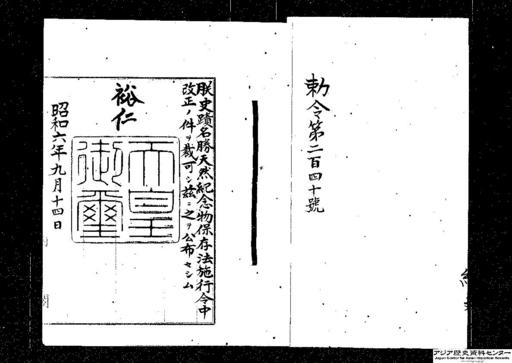 勅令第二百四十號
朕史蹟名勝天然紀念物保存法施行令中
改正ノ件ヲ裁可シ茲ニ之ヲ公布セシム
裕仁
天皇
御璽
昭和六年九月十四日
アジア歴史資料センター
Japan Center for Asian Historical Records